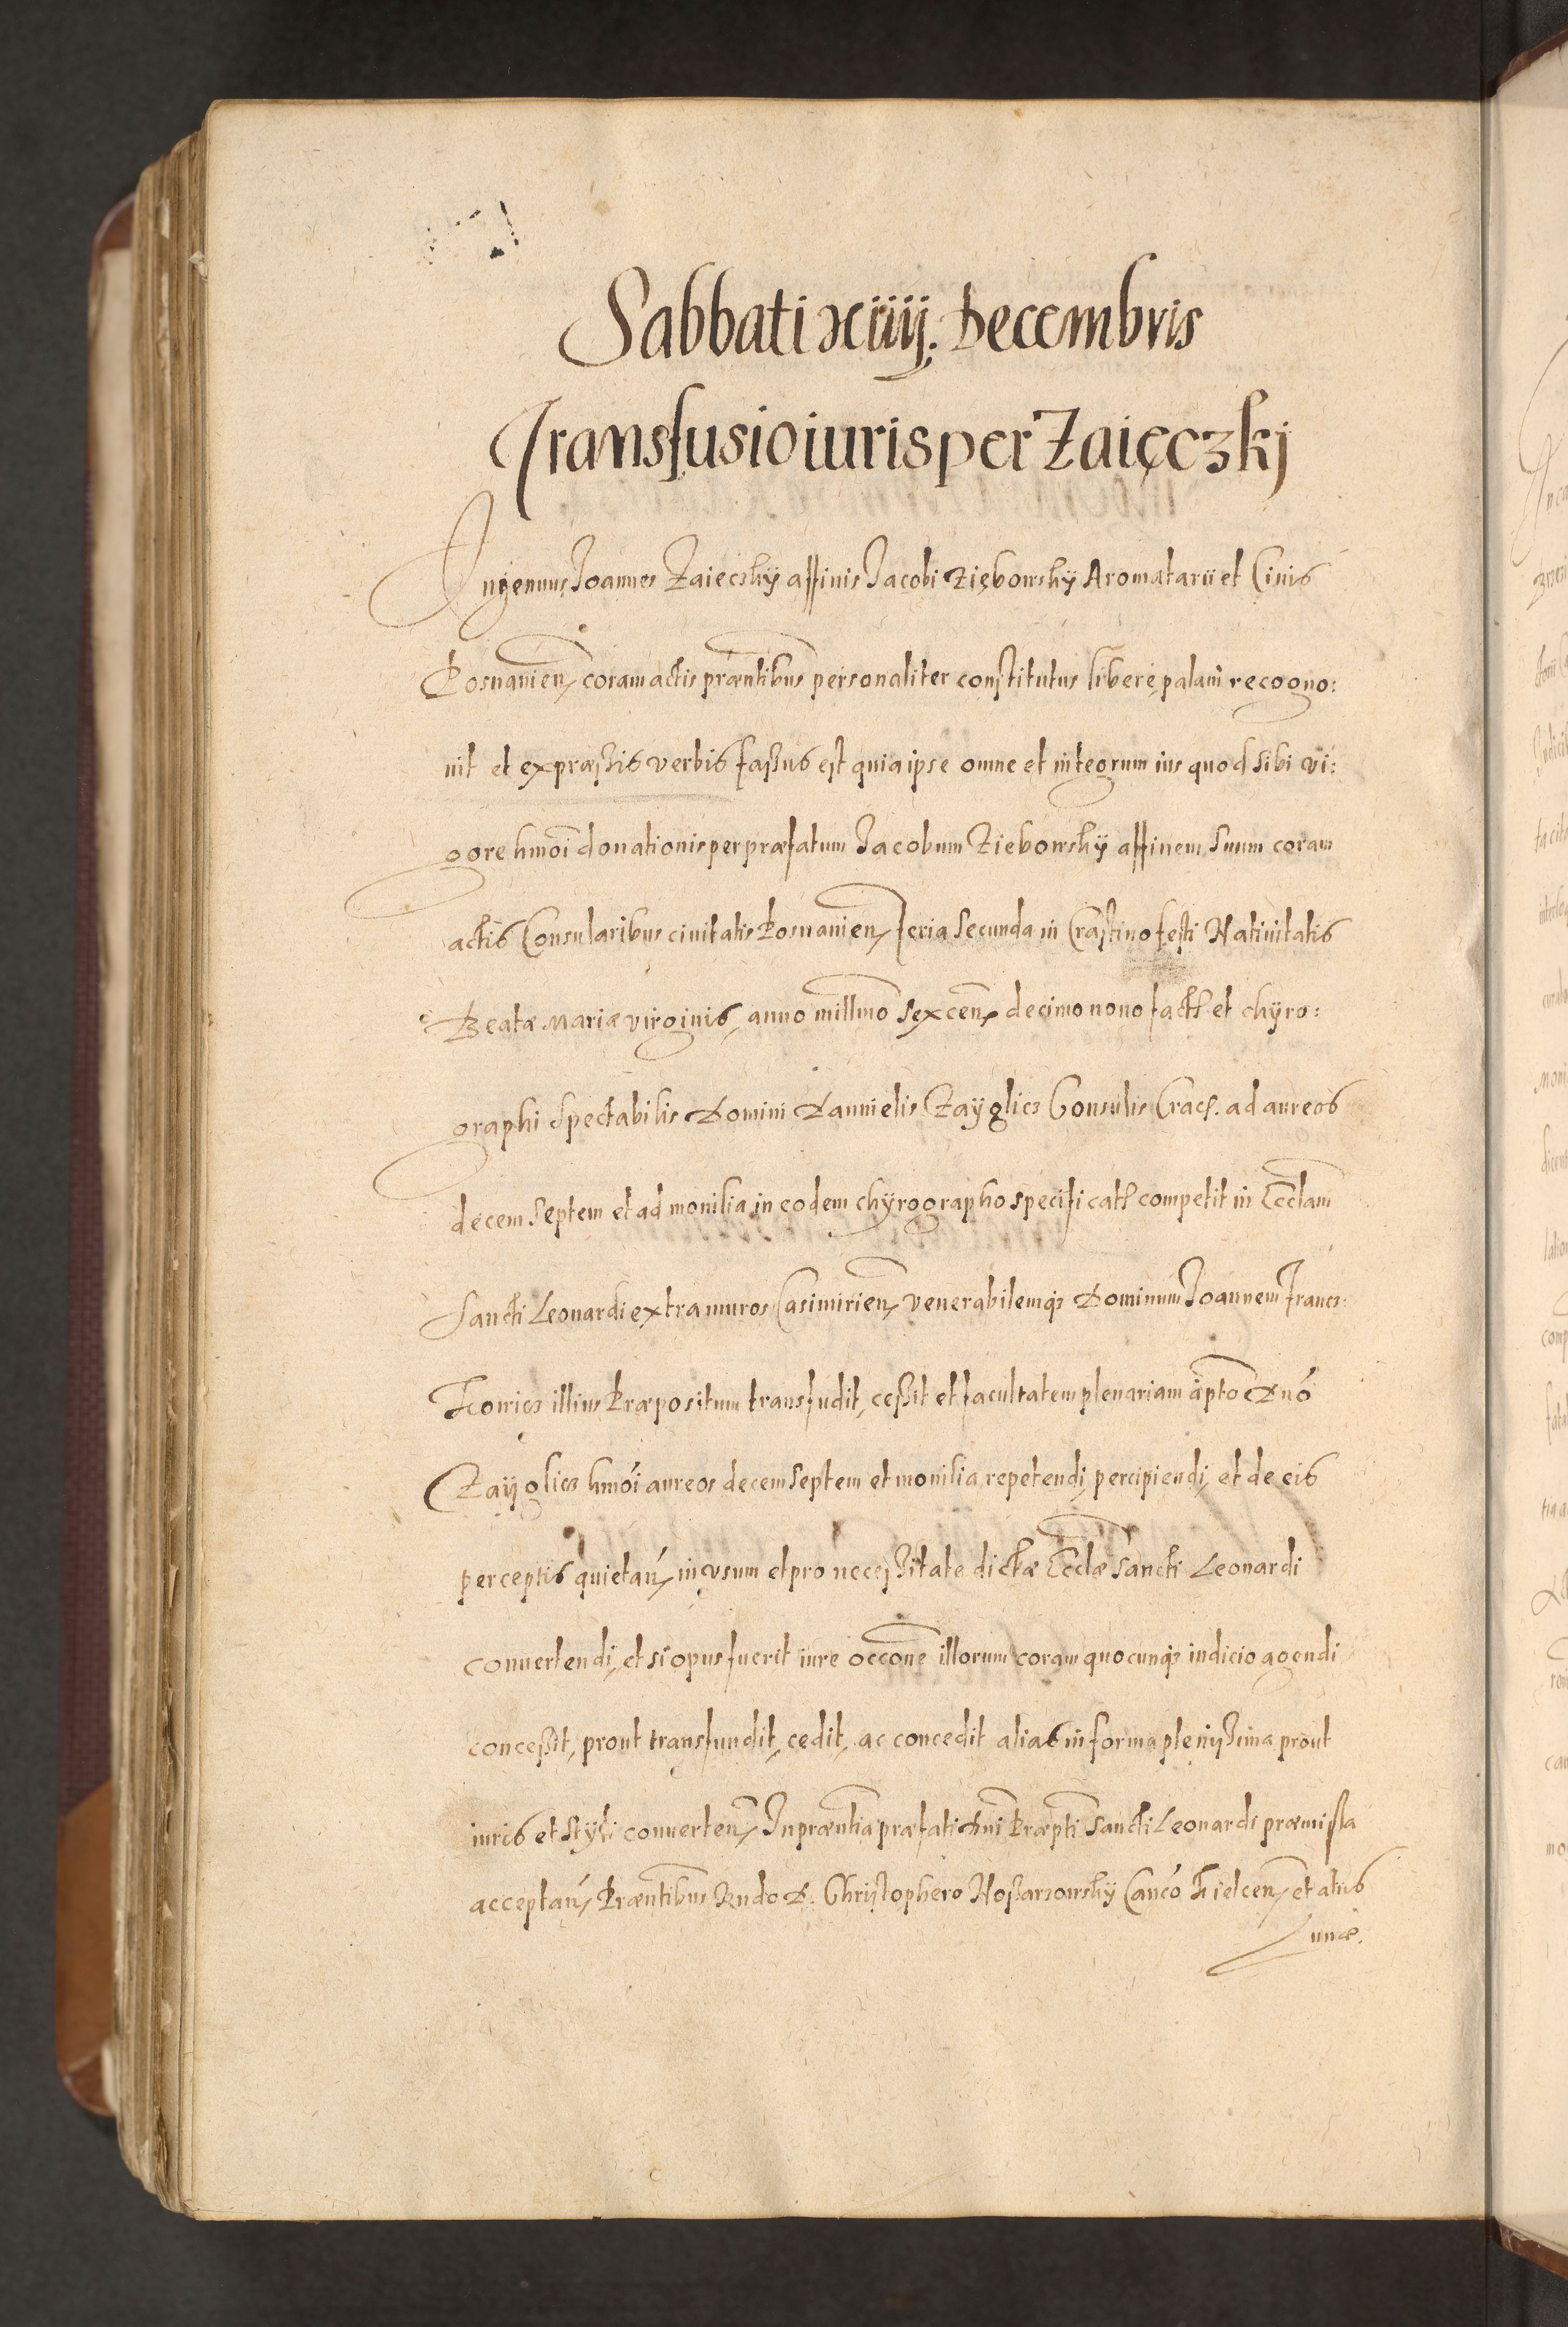 Sabbati xiiij. Decembris
Transfusio iuris per Zaięczkj
Ingenuus Joannes Zaieczkÿ affinis Jacobi Ziębowskÿ Aromatarii et Civis
Posnanien, coram actis præntibus personaliter constitutus libere palam recogno:
uit et expræssis verbis fassus est quia ipse omne et integrum ius quod sibi vi:
gore hmoi donationis per præfatum Jacobum Ziebowskÿ affinem suum coram
actis Consularibus ciuitatis Posnanien, feria secunda in Crastino festi Natiuitatis
Beatæ Mariæ virginis, anno millmo sexcen, decimo nono fact et chÿro:
graphi Spectabilis Domini Dannielis Zayglicz Consulis Crac. ad aureos
decem septem et ad monilia in eodem chÿrographo specificat competit in Ecclam
Sancti Leonardi extra muros Casimirien, venerabilemq3 Dominum Joannem Francz:
kowicz illius Præpositum transfudit, cessit et facultatem plenariam a pto Dno
Zayglicz hmoi aureos decem septem et monilia repetendi, percipiendi, et de eis
perceptis quietan, in vsum et pro necessitate dictæ Ecclæ Sancti Leonardi
conuertendi, et si opus fuerit iure occone illorum coram quocunq3 iudicio agendi
concessit, prout transfundit, cedit, ac concedit alias in forma plenissima prout
iuris et styli conuerten, In præntia præfati Dni Præpti Sancti Leonardi præmissa
acceptan, Præntibus Rndo D. Christophero Kielcen, et aliis
Lunæ.